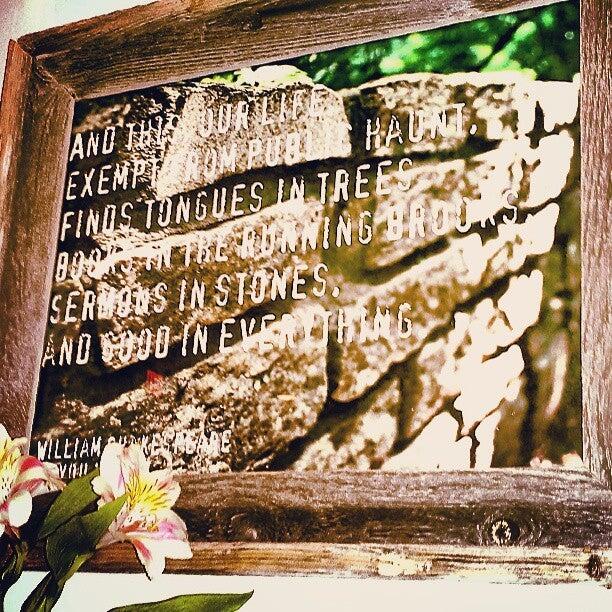 AND THIS OUR LIFE,
EXEMPT FROM PUBLIC HAUNT,
FINDS TONGUES IN TREES
BOOKS IN THE RUNNING BROOKS,
SERMONS IN STONES,
AND GOOD IN EVERYTHING
WILLIAM SHAKESPEARE
YOU